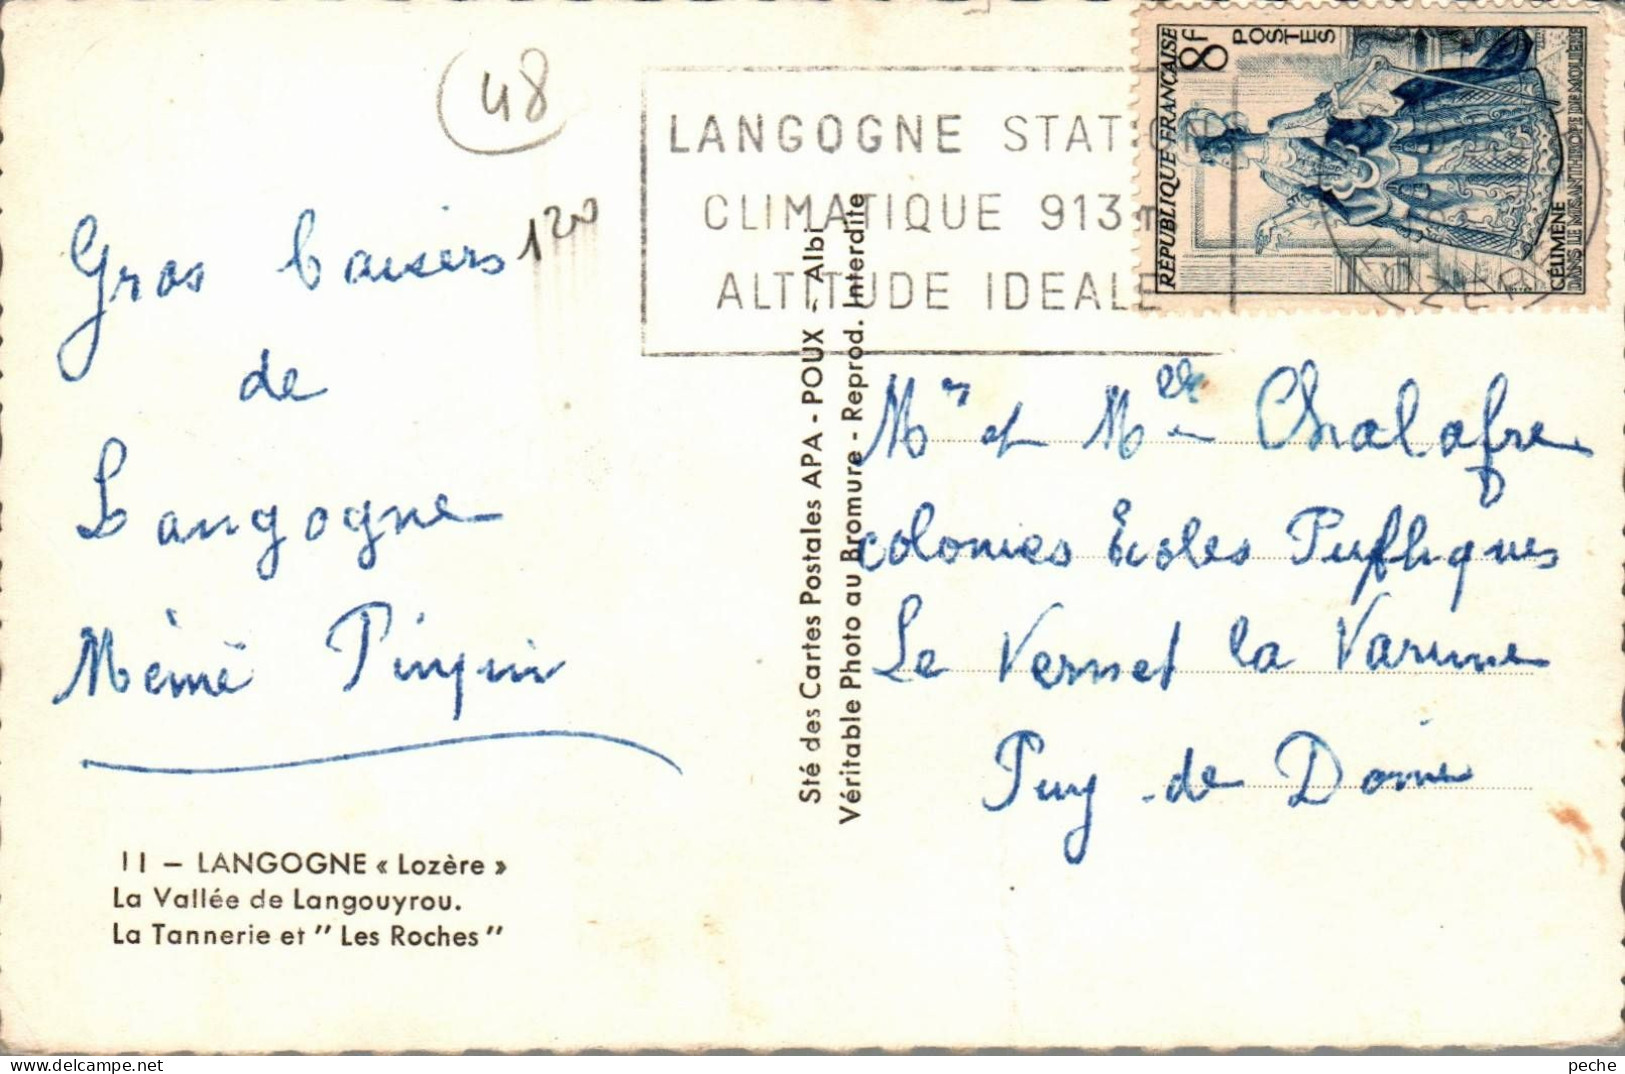 48
120
LANGOGNE STATION
CLIMATIQUE 913 m
ALTITUDE IDEALE
LOZERE
REPUBLIQUE FRANÇAISE
8f
POSTES
CÉLIMÈNE
DANS LE MISANTHROPE DE MOLIÈRE
Gros baisers
de
Langogne
Mémé Pinpin
11 – LANGOGNE « Lozère »
La Vallée de Langouyrou.
La Tannerie et " Les Roches "
Sté des Cartes Postales APA - POUX - Albi
Véritable Photo au Bromure - Reprod. Interdite
Mr et Mlle Chalafre
colonies Ecoles Publiques
Le Vernet la Varenne
Puy-de Dôme
peche